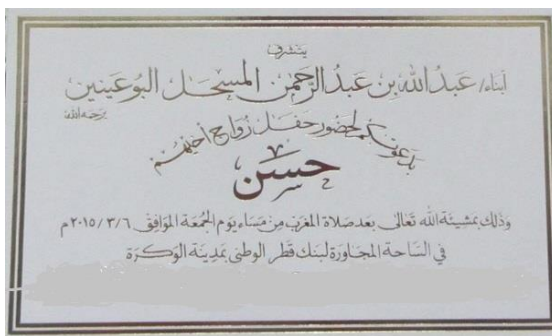 يتشرف
أبناء/ عبدالله بن عبدالرحمن المسحل البوعينين
يرحمه الله
بدعوتكم لحضور حفل زواج أخيهم
حسن
وذلك بمشيئة الله تعالى بعد صلاة المغرب من مساء يوم الجمعة الموافق ٢٠١٥/٣/٦م
في الساحة المجاورة لبنك قطر الوطني بمدينة الوكرة